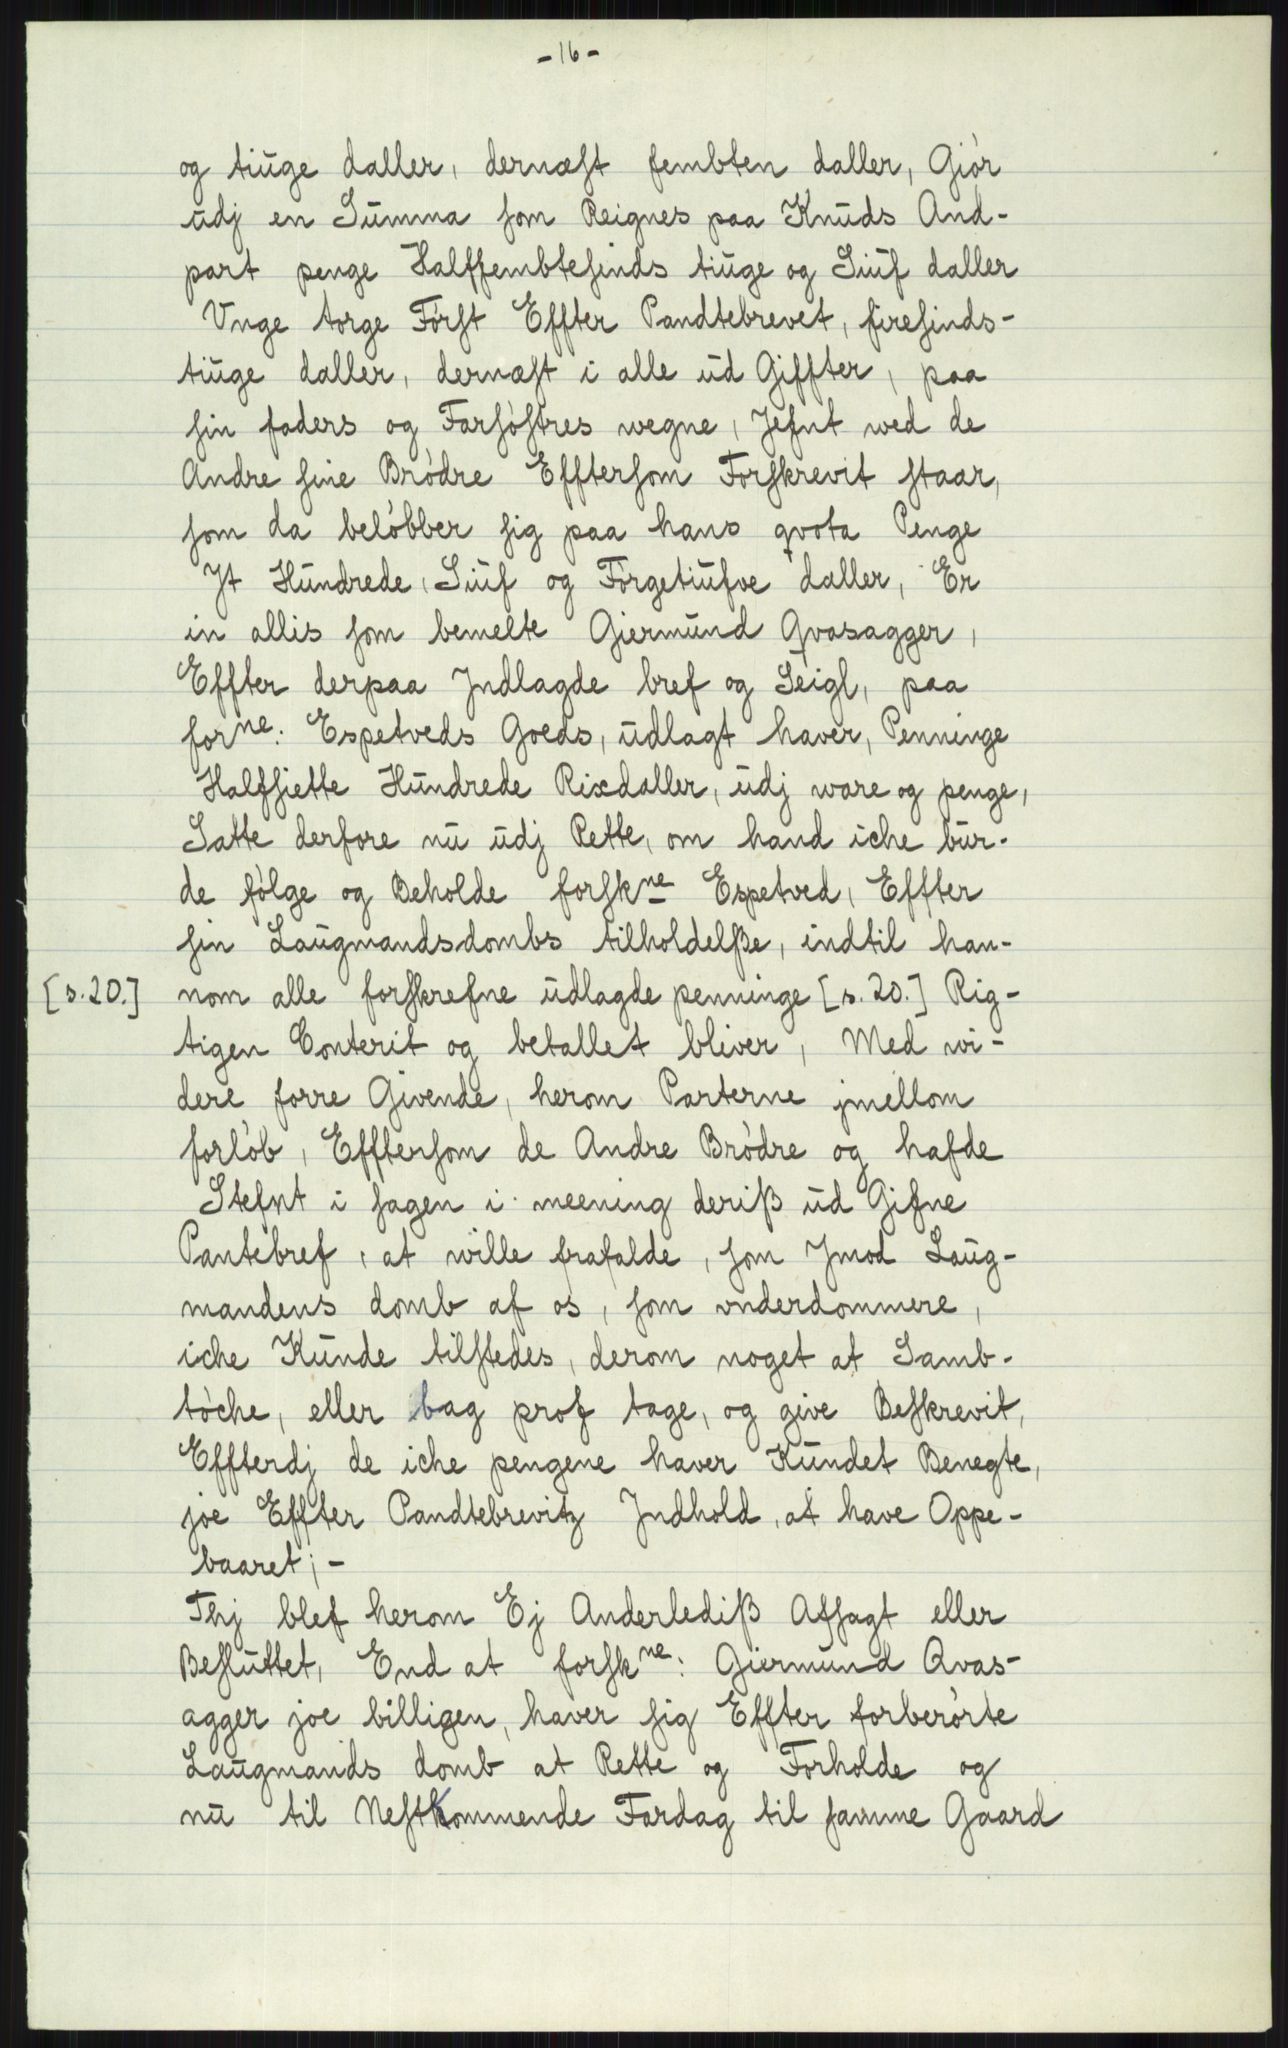 -16-
og tiuge daller, dernæst fembten daller, Giör
udj en Summa som Reignes paa Knuds And-
part penge Halffembtesinds tiuge og Siuf daller
Unge torge Först Effter Pandtebrevet, firesinds-
tiuge daller, dernæst i alle ud Giffter, paa
sin faders og Farsöstres wegne, Jefnt wed de
Andre sine Brödre Efftersom Forskrevit staar,
som da belöbber sig paa hans qvota Penge
Jt Hundrede, Siuf og Förgetiufve daller, Er
in allis som bemelte Giermund Qvasagger,
Effter derpaa Jndlagde bref og Seigl, paa
forne: Espetveds Goeds, udlagt haver, Penninge
Halfsiette Hundrede Rixdaller, udj ware og penge,
Satte derfore nu udj Rette, om hand iche bur-
de fölge og Beholde forskne Espetved, Effter
sin Laugmandsdombs tilholdelße, indtil han-
[s.20.] nom alle forskrefne udlagde penninge [s.20.] Rig-
tigen Conterit og betallet bliver, Med wi-
dere forre Givende, herom Parterne jmellom
forlöb, Efftersom de Andre Brödre og hafde
Stefnt i sagen i meening deriß ud Gifne
Pantebref, at wille frafalde, som Jmod Laug-
mandens domb af os, som underdommere,
iche Kunde tilstedes, derom noget at Samb-
töche, eller bag prof tage, og give Beskrevit,
Effterdj de iche pengene haver Kundet Benegte,
joe Effter Pandtebrevitz Jndhold, at have Oppe-
baaret; -
Thj blef herom Ej Anderlediß Afsagt eller
Besluttet, End at forskne: Giermund Qvas-
agger joe billigen, haver sig Effter forberörte
Laugmands domb at Rette og Forholde og
nu til Nestkommende Fardag til samme Gaard